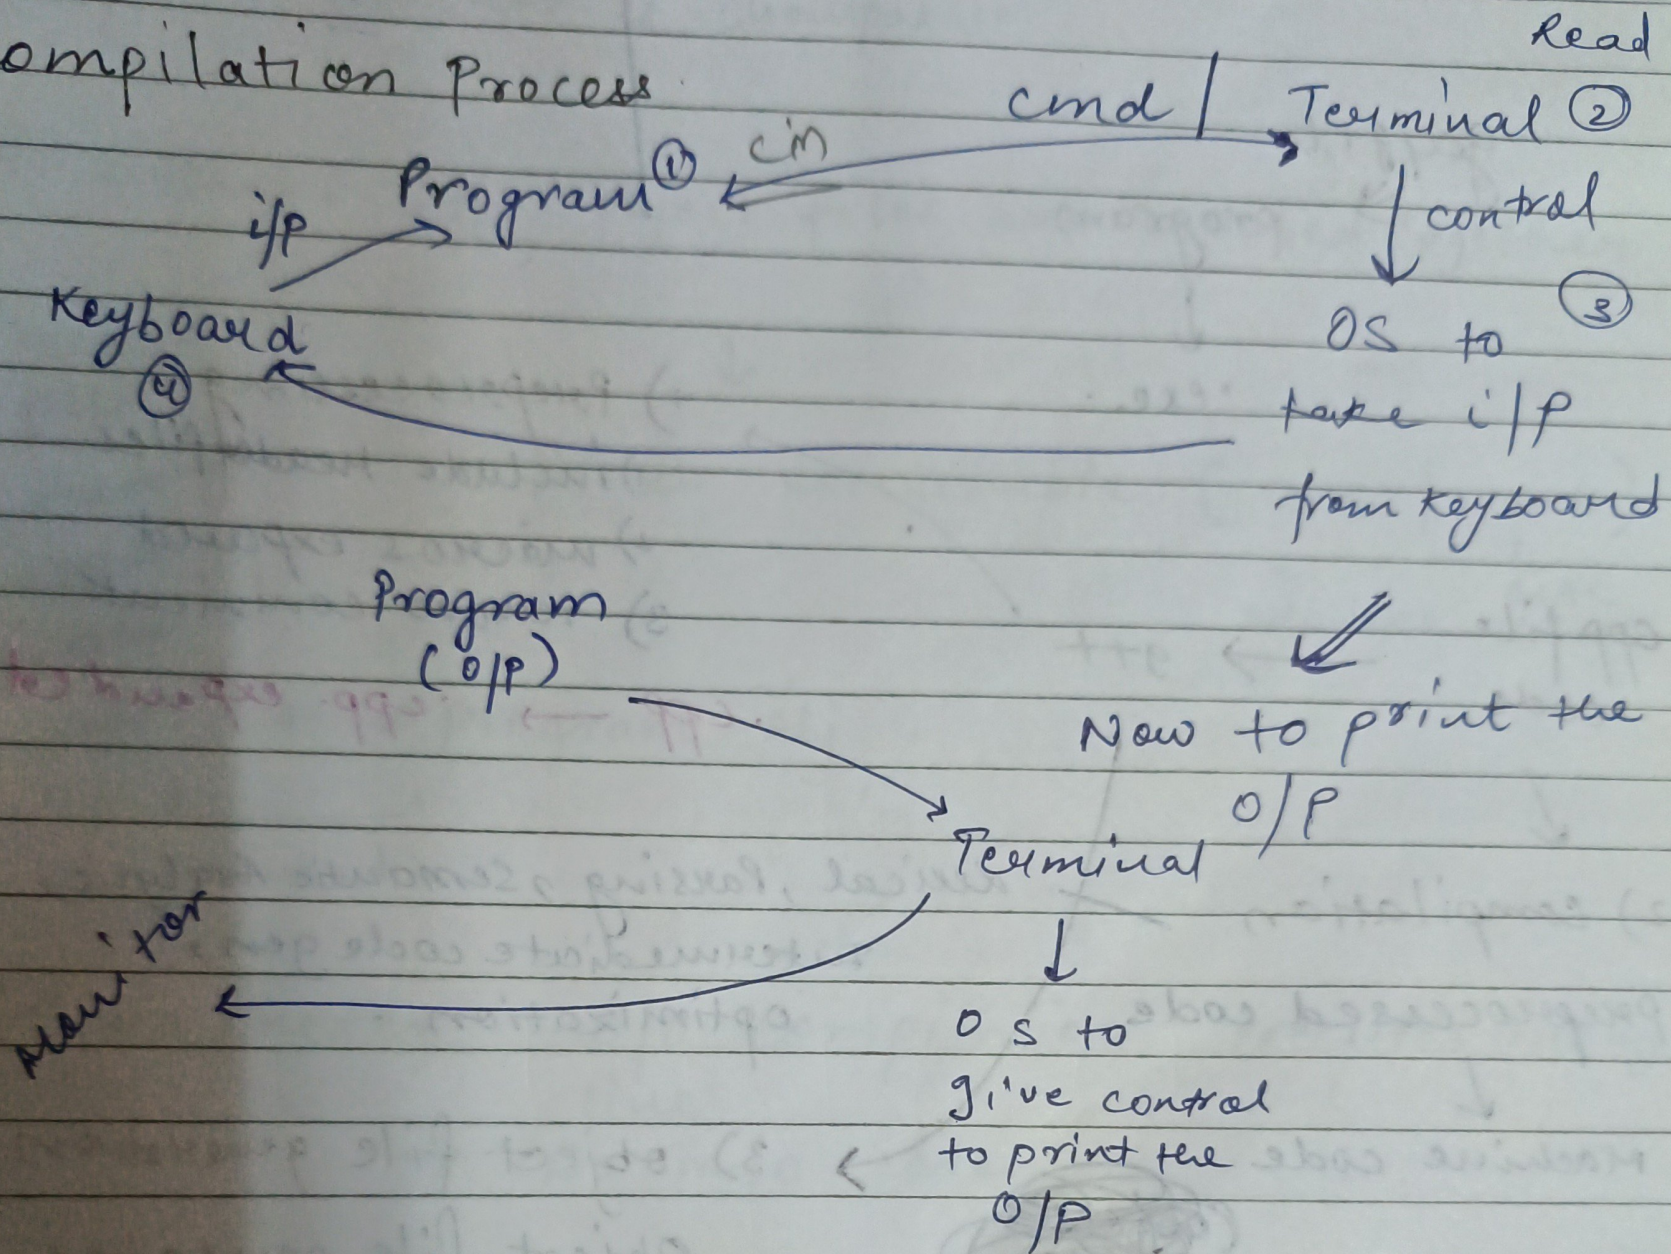 Read
ompilation Process
cmd / Terminal ②
Program ① cin
i/p
control
Keyboard
④
OS to ③
take i/p
from keyboard
Program
(O/P)
Now to print the
O/P
Terminal
Monitor
OS to
give control
to print the
O/P